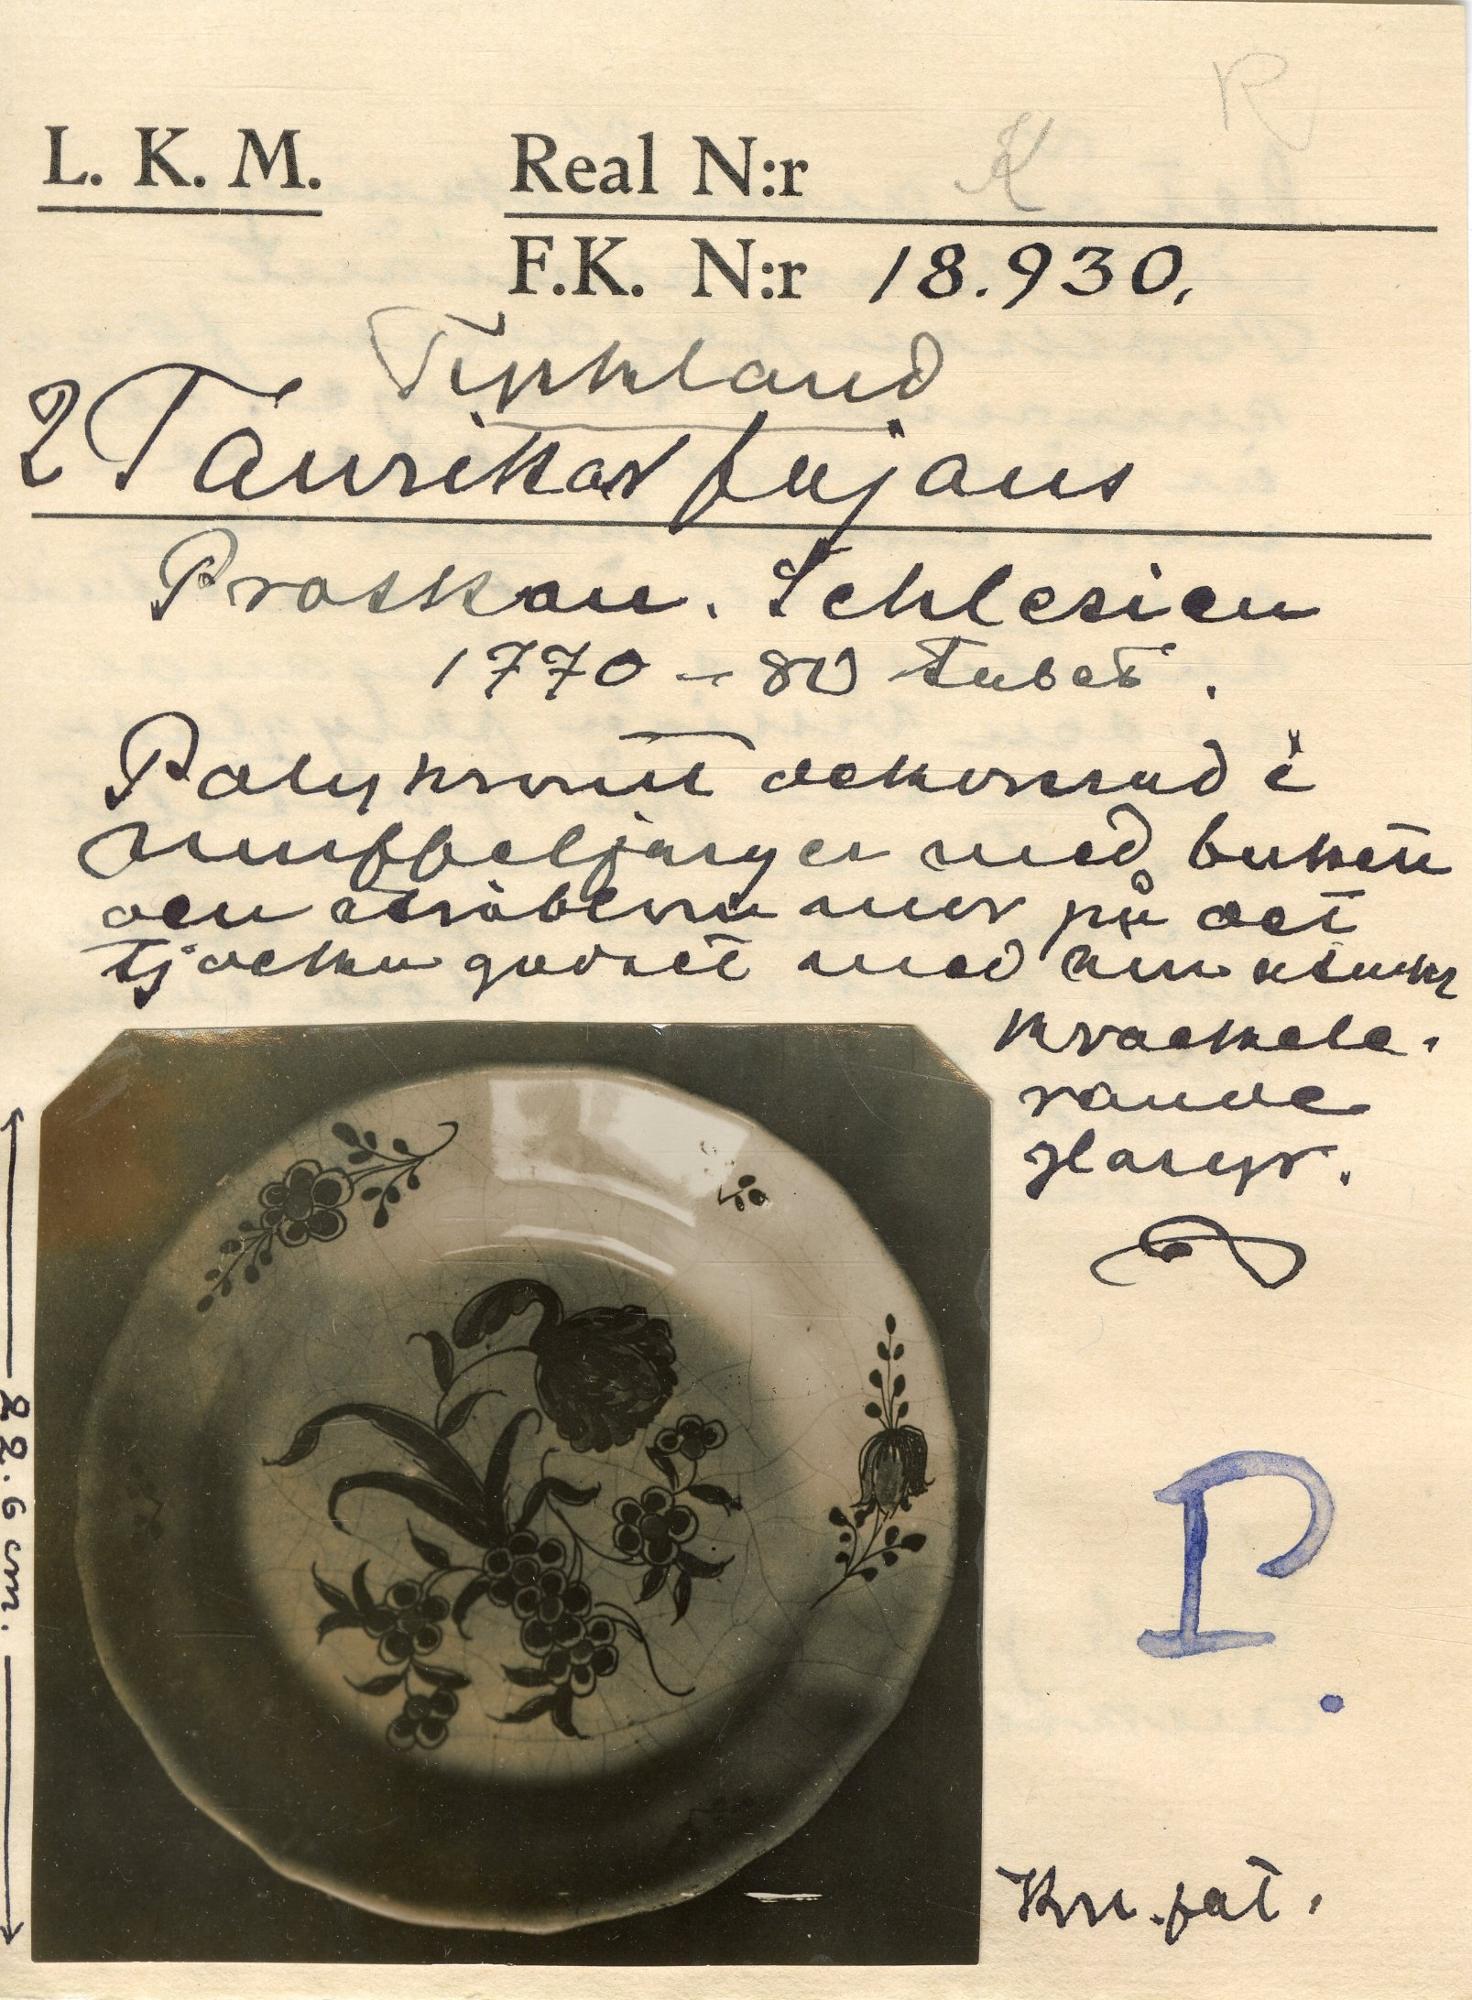 R
L. K. M.
Real N:r K
F.K. N:r 18.930.
Tyskland
2 Tallrikar fajans
Proskau. Schlesien
1770-80 talet.
Polykromt dekorerad i
muffelfärger med bukett
och ströblommor på det
tjocka godset med
krackele-
rande
glasyr.
22.6 cm.
P.
fat.